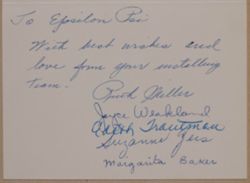 To Epsilon Psi
With best wishes and
love from your installing
team.
Ruth Miller
Joyce Weakland
Edith Trautman
Suzanne
Margarita Baker